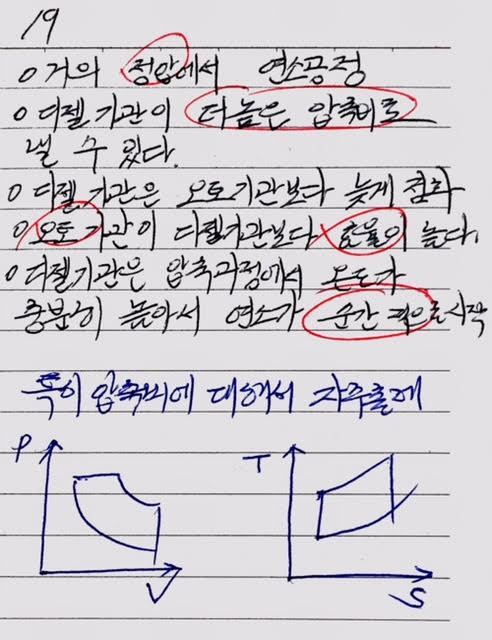 19
o 거의 정압에서 연소공정
o 디젤기관이 더높은 압축비로
낼 수 있다.
o 디젤기관은 오토기관보다 늦게 점화
o 오토기관이 디젤기관보다 효율이 높다.
o 디젤기관은 압축과정에서 온도가
충분히 높아서 연소가 순간적으로 시작
특히 압축비에 대해서 자주출제
P T
V S